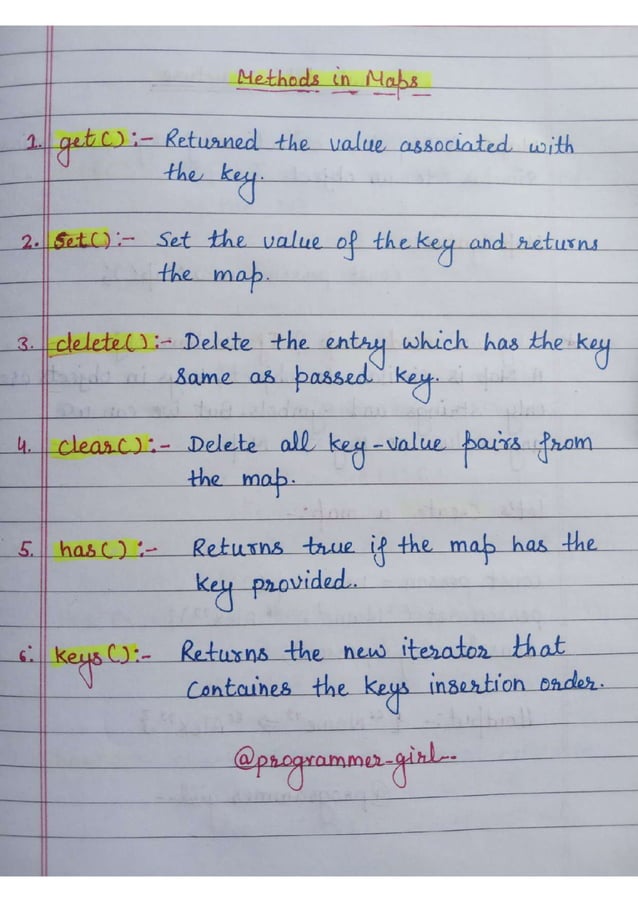 Methods in Maps
1. get() :- Returned the value associated with
the key.
2. Set() :- Set the value of the key and returns
the map.
3. delete() :- Delete the entry which has the key
same as passed key.
4. clear() :- Delete all key-value pairs from
the map.
5. has() :- Returns true if the map has the
key provided.
6. keys() :- Returns the new iterator that
Containes the keys insertion order.
@programmer_girl--